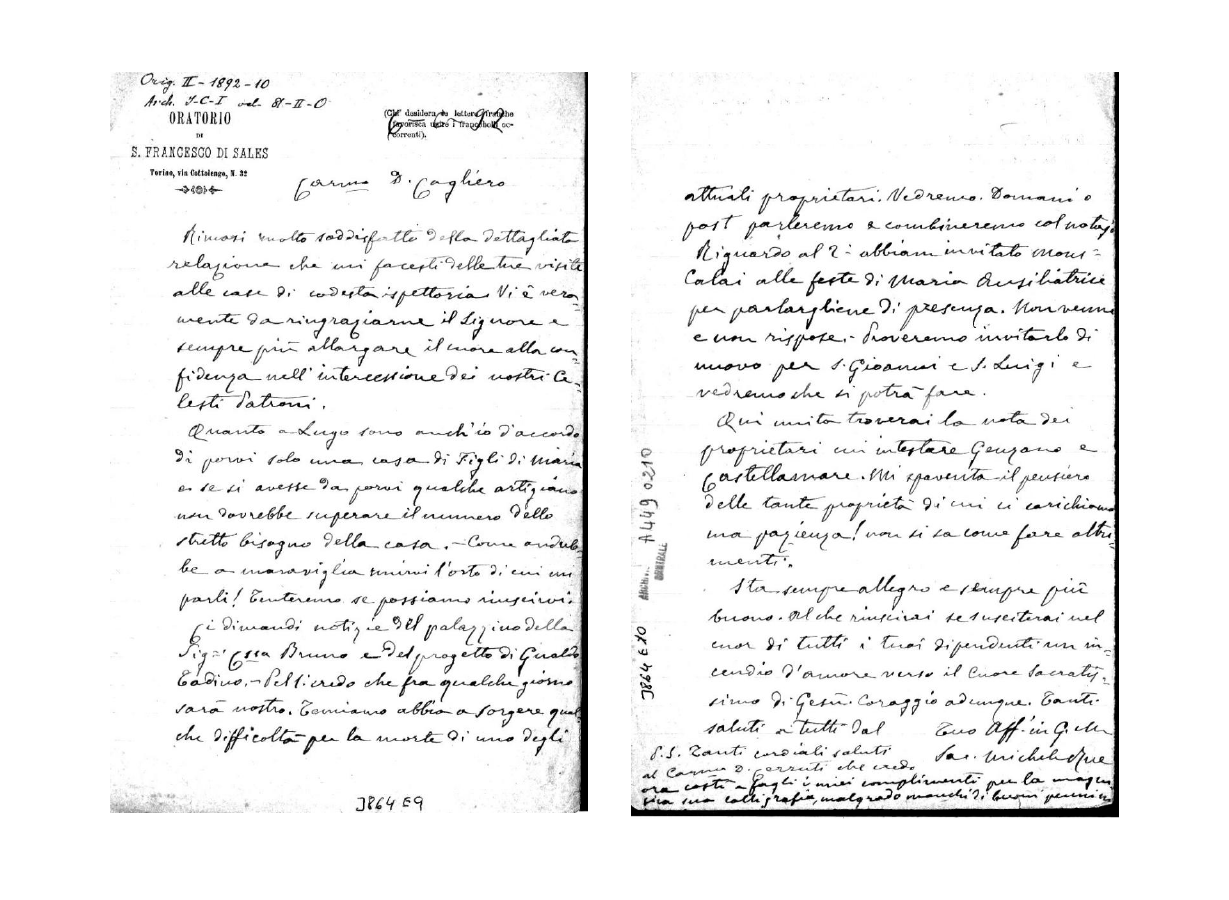 Orig. II - 1892 - 10
Arch. I-C-I vol. 81-II-O
ORATORIO
DI
S. FRANCESCO DI SALES
Torino, via Cottolengo, N. 32
(Chi desidera lettere
favorisca unire i francobolli oc-
correnti).
92
Carmo D. Cagliero
Rimasi molto soddisfatto della dettagliata
relazione che mi facesti delle tue visite
alle case di codesta ispettoria. Vi è vera
mente da ringraziarne il Signore e
sempre più allargare il cuore alla con
fidenza nell'intercessione dei nostri Ce-
lesti Patroni.
Quanto a Lugo sono anch'io d'accordo
di porvi solo una casa di Figli di Maria
e se si avesse da porvi qualche artigiano
non dovrebbe superare il numero dello
stretto bisogno della casa. - Come andreb-
be a maraviglia unirvi l'orto di cui mi
parli! Tenteremo se possiamo riuscirvi.
Ci dimandi notizie del palazzino della
Sig.ra Cssa Bruno e del progetto di Gualdo
Tadino. - Pel 1. credo che fra qualche giorno
sarà nostro. Temiamo abbia a sorgere qual
che difficoltà per la morte di uno degli
J864 E9
attuali proprietari. Vedremo. Domani o
post parleremo e combineremo col notajo
Riguardo al 2.- abbiam invitato mons=
Calai alle feste di Maria Ausiliatrice
per parlargliene di presenza. Non venne
e non rispose. - Proveremo invitarlo di
nuovo per S. Gioanni e S. Luigi e
vedremo che si potrà fare.
Qui unita troverai la nota dei
proprietari cui intestare Genzano e
Castellamare. Mi spaventa il pensiero
delle tante proprietà di cui ci carichiamo
ma pazienza! non si sa come fare altri-
menti.
Sta sempre allegro e sempre più
buono. Al che riuscirai se susciterai nel
cuor di tutti i tuoi dipendenti un in-
cendio d'amore verso il Cuore Sacratis-
simo di Gesù. Coraggio adunque. Tanti
saluti a tutti dal Tuo Aff. in G. e M
Sac. Michele Rua
P.S. Tanti cordiali saluti
al Carmo D. Cerruti che credo
ora costì e fagli i miei complimenti per la magni
fica sua calligrafia, malgrado manchi di buoni pennini
A 449 0210
CENTRALE
J864 E10